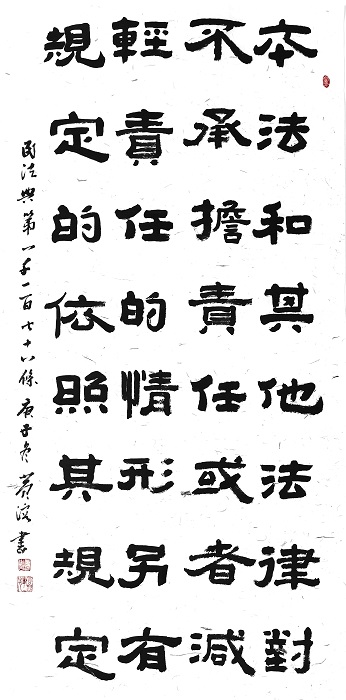 本法和其他法律對
不承擔責任或者減
輕責任的情形另有
規定的依照其規定
民法典第一千一百七十八條 庚子冬 書